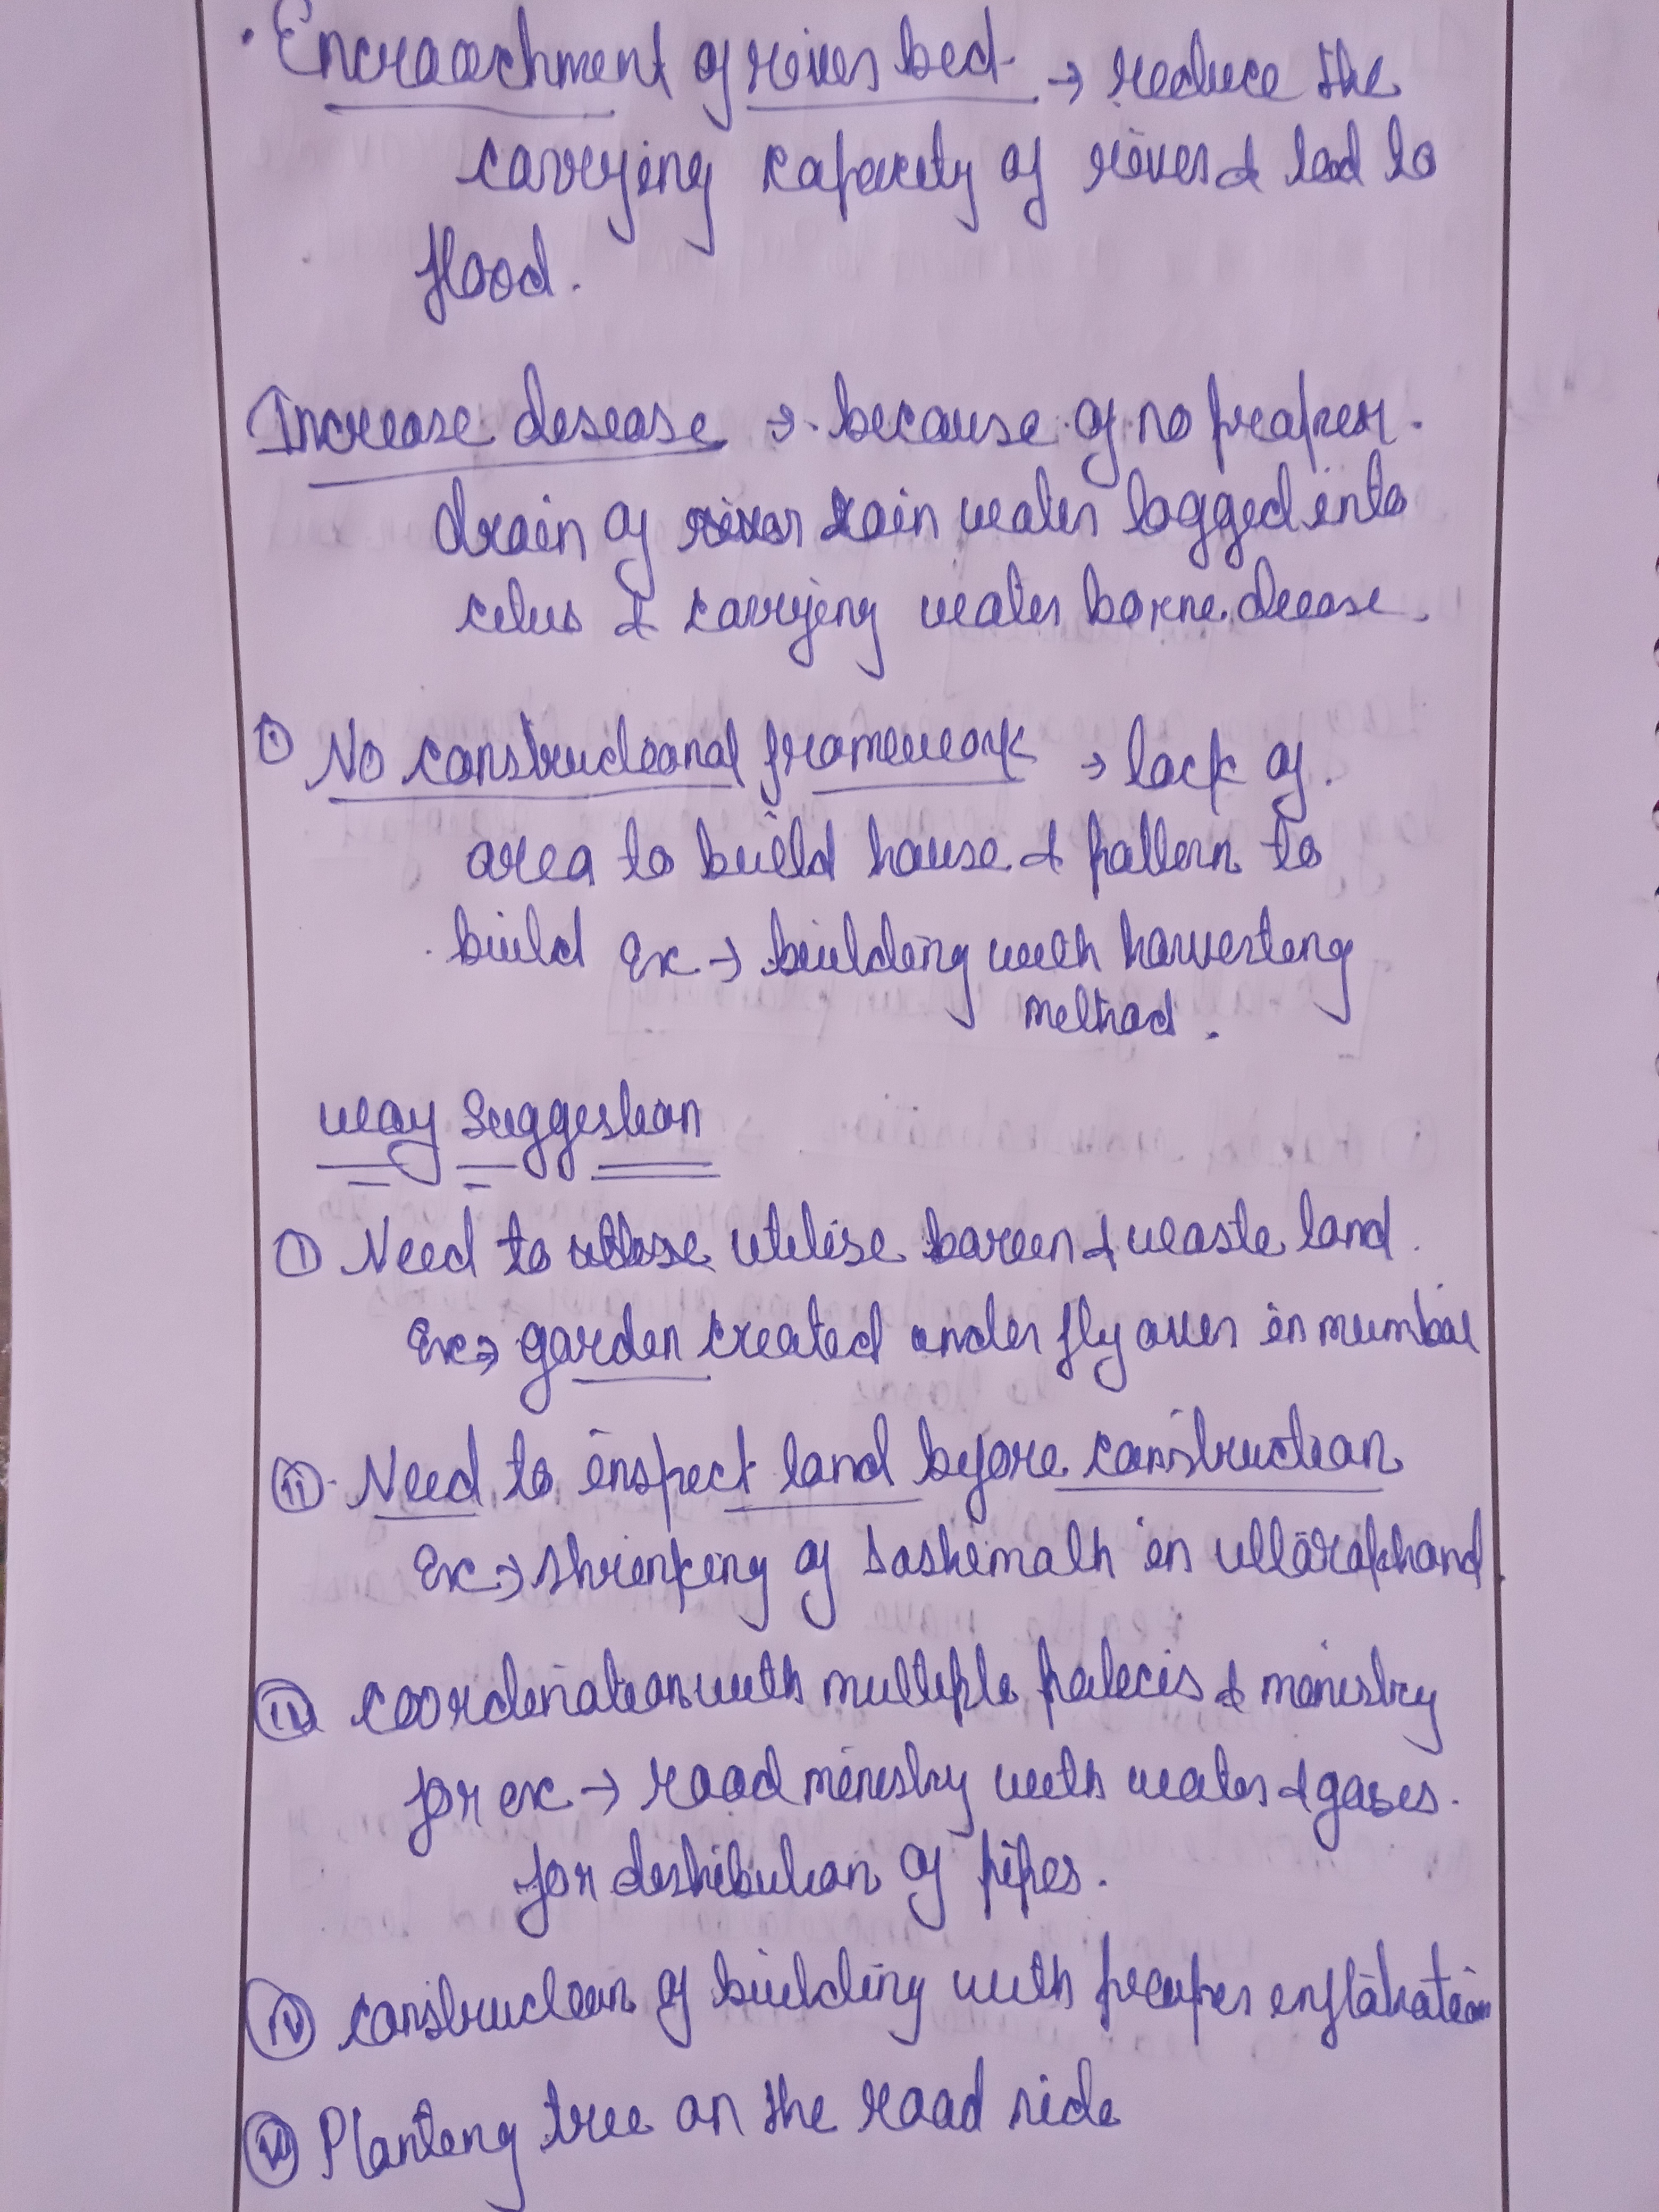 • Encroachment of river bed → reduce the
carrying capacity of river & lead to
flood.
Increase desease → because of no proper
drain of river rain water logged into
& carrying water borne. decase.
No constructional framework → lack of
area to build house & pattern to
build Ex → building with harvesting
method.
way suggestion
(i) Need to utilise bareen & waste land.
Ex → garden created under fly over in mumbai
(ii) Need to inspect land before construction
Ex → shrinking of Joshimath in uttarakhand
(iii) coordination with multiple policies & ministry
for ex → road ministry with water & gases.
for distribution of pipes.
(iv) construction of building with proper
(v) Planting tree on the road side